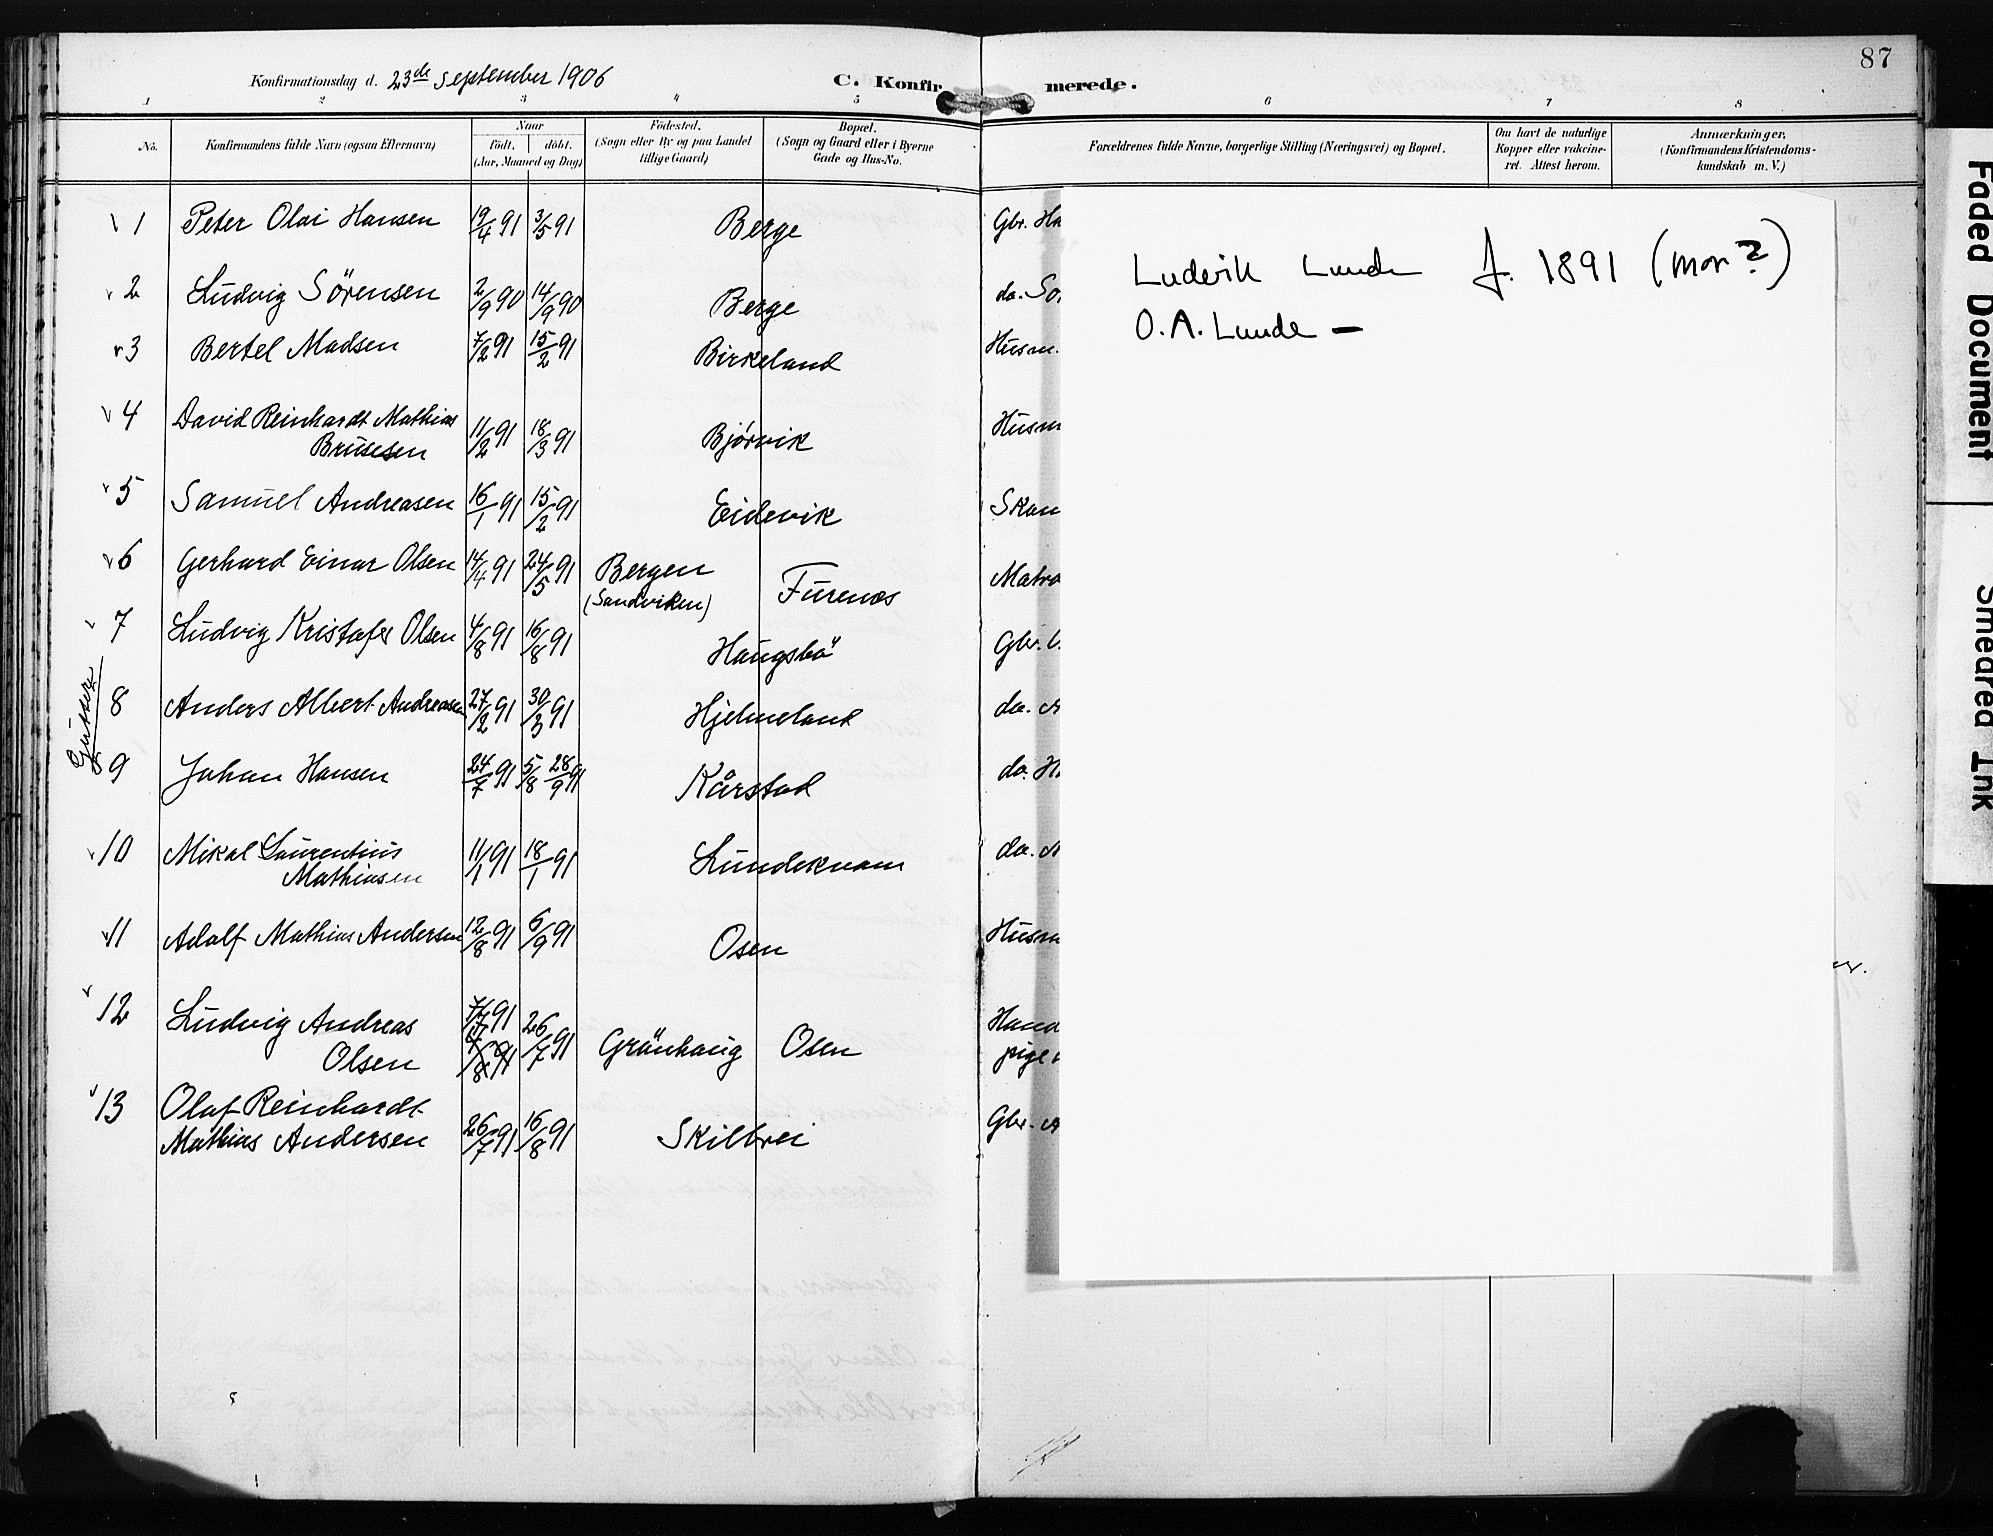 87
Konfirmationsdag d. 23de september 1906
C. Konfirmerede.
1 2 3 4 5 6 7 8
No.
Konfirmandens fulde Navn (ogsaa Efternavn)
Naar
født. døbt.
(Aar, Maaned og Dag)
Fødested.
(Sogn eller By og paa Landet
tillige Gaard)
Bopæl.
(Sogn og Gaard eller i Byerne
Gade og Hus-No.
Forældrenes fulde Navne, borgerlige Stilling (Næringsvei) og Bopæl.
Om havt de naturlige
Kopper eller vakcine-
ret. Attest herom.
Anmærkninger,
(Konfirmandens Kristendoms-
kundskab m. V.)
Gutter
1 Peter Olai Hansen 19/4 91 3/5 91 Berge Gbr. Ha
2 Ludvig Sörensen 2/9 90 14/9 90 Berge do. So
3 Bertel Madsen 7/2 91 15/2 91 Birkeland Husm.
4 David Reinhardt Mathias
Brusesen 11/2 91 18/3 91 Bjørvik Husm
5 Samuel Andreasen 16/1 91 15/2 91 Eidevik Skan
6 Gerhard Einar Olsen 14/4 91 24/5 91 Bergen Furenes Matro
(Sandviken)
7 Ludvig Kristofer Olsen 4/8 91 16/8 91 Haugsbö Gbr.
8 Anders Albert Andreasen 27/2 91 30/3 91 Hjelmeland do.
9 Johan Hansen 24/7 91 5/8 28/9 91 Kårstad do. H
10 Mikal Laurentius
Mathiasen 11/1 91 18/1 91 Lundekvam do.
11 Adolf Mathias Andersen 12/8 91 6/9 91 Osen Husm
12 Ludvig Andreas 91 Hand
Olsen 26/7 91 Grönhaug Osen pige
13 Olaf Reinhardt
Mathias Andersen 26/7 91 16/8 91 Skilbrei Gbr. A
Ludvik Lunde f. 1891 (mor?)
O.A. Lunde —
Faded Document
Smeared Ink